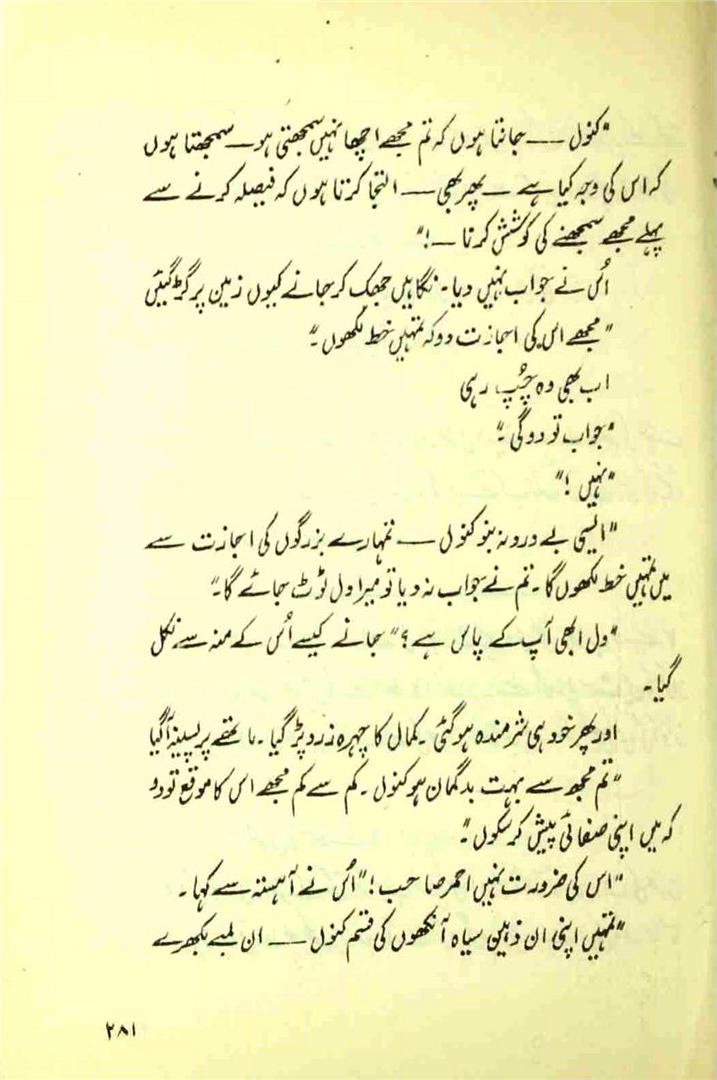 "کنول — جانتا ہوں کہ تم مجھے اچھا نہیں سمجھتی ہو — سمجھتا ہوں
کہ اس کی وجہ کیا ہے — پھر بھی — التجا کرتا ہوں کہ فیصلہ کرنے سے
پہلے مجھے سمجھنے کی کوشش کرنا —!"
اُس نے جواب نہیں دیا۔ نگاہیں جھک کر جانے کیوں زمین پر گڑ گئیں
"مجھے اس کی اجازت دو کہ تمہیں خط لکھوں۔"
اب بھی وہ چُپ رہی
"جواب تو دو گی۔"
"نہیں!"
"ایسی بے درد نہ بنو کنول — تمہارے بزرگوں کی اجازت سے
میں تمہیں خط لکھوں گا۔ تم نے جواب نہ دیا تو میرا دل ٹوٹ جائے گا۔"
"دل ابھی آپ کے پاس ہے؟" جانے کیسے اُس کے منہ سے نکل
گیا۔
اور پھر خود ہی شرمندہ ہو گئی۔ کمال کا چہرہ زرد پڑ گیا۔ ماتھے پر پسینہ آ گیا
"تم مجھ سے بہت بدگمان ہو کنول۔ کم سے کم مجھے اس کا موقع تو دو
کہ میں اپنی صفائی پیش کر سکوں۔"
"اس کی ضرورت نہیں احمر صاحب!" اُس نے آہستہ سے کہا۔
"تمہیں اپنی ان ذہین سیاہ آنکھوں کی قسم کنول — ان لمبے بکھرے
۲۸۱